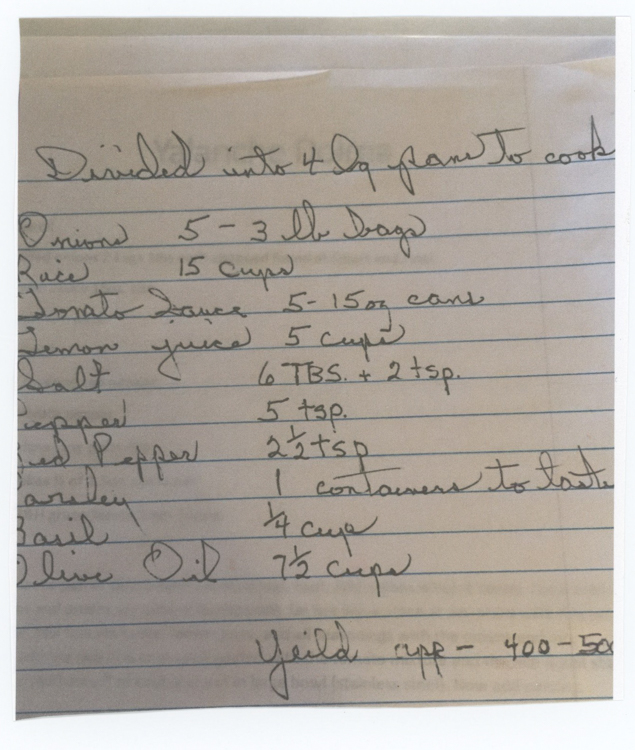 Divided into 4 lg pans to cook
Onions 5 - 3 lb bags
Rice 15 cups
Tomato Sauce 5 - 15oz cans
Lemon juice 5 cups
Salt 6 TBS. + 2 tsp.
Pepper 5 tsp.
Red Pepper 2 1/2 tsp
Parsley 1 containers to taste
Basil 1/4 cup
Olive Oil 7 1/2 cups
Yeild app - 400 - 50